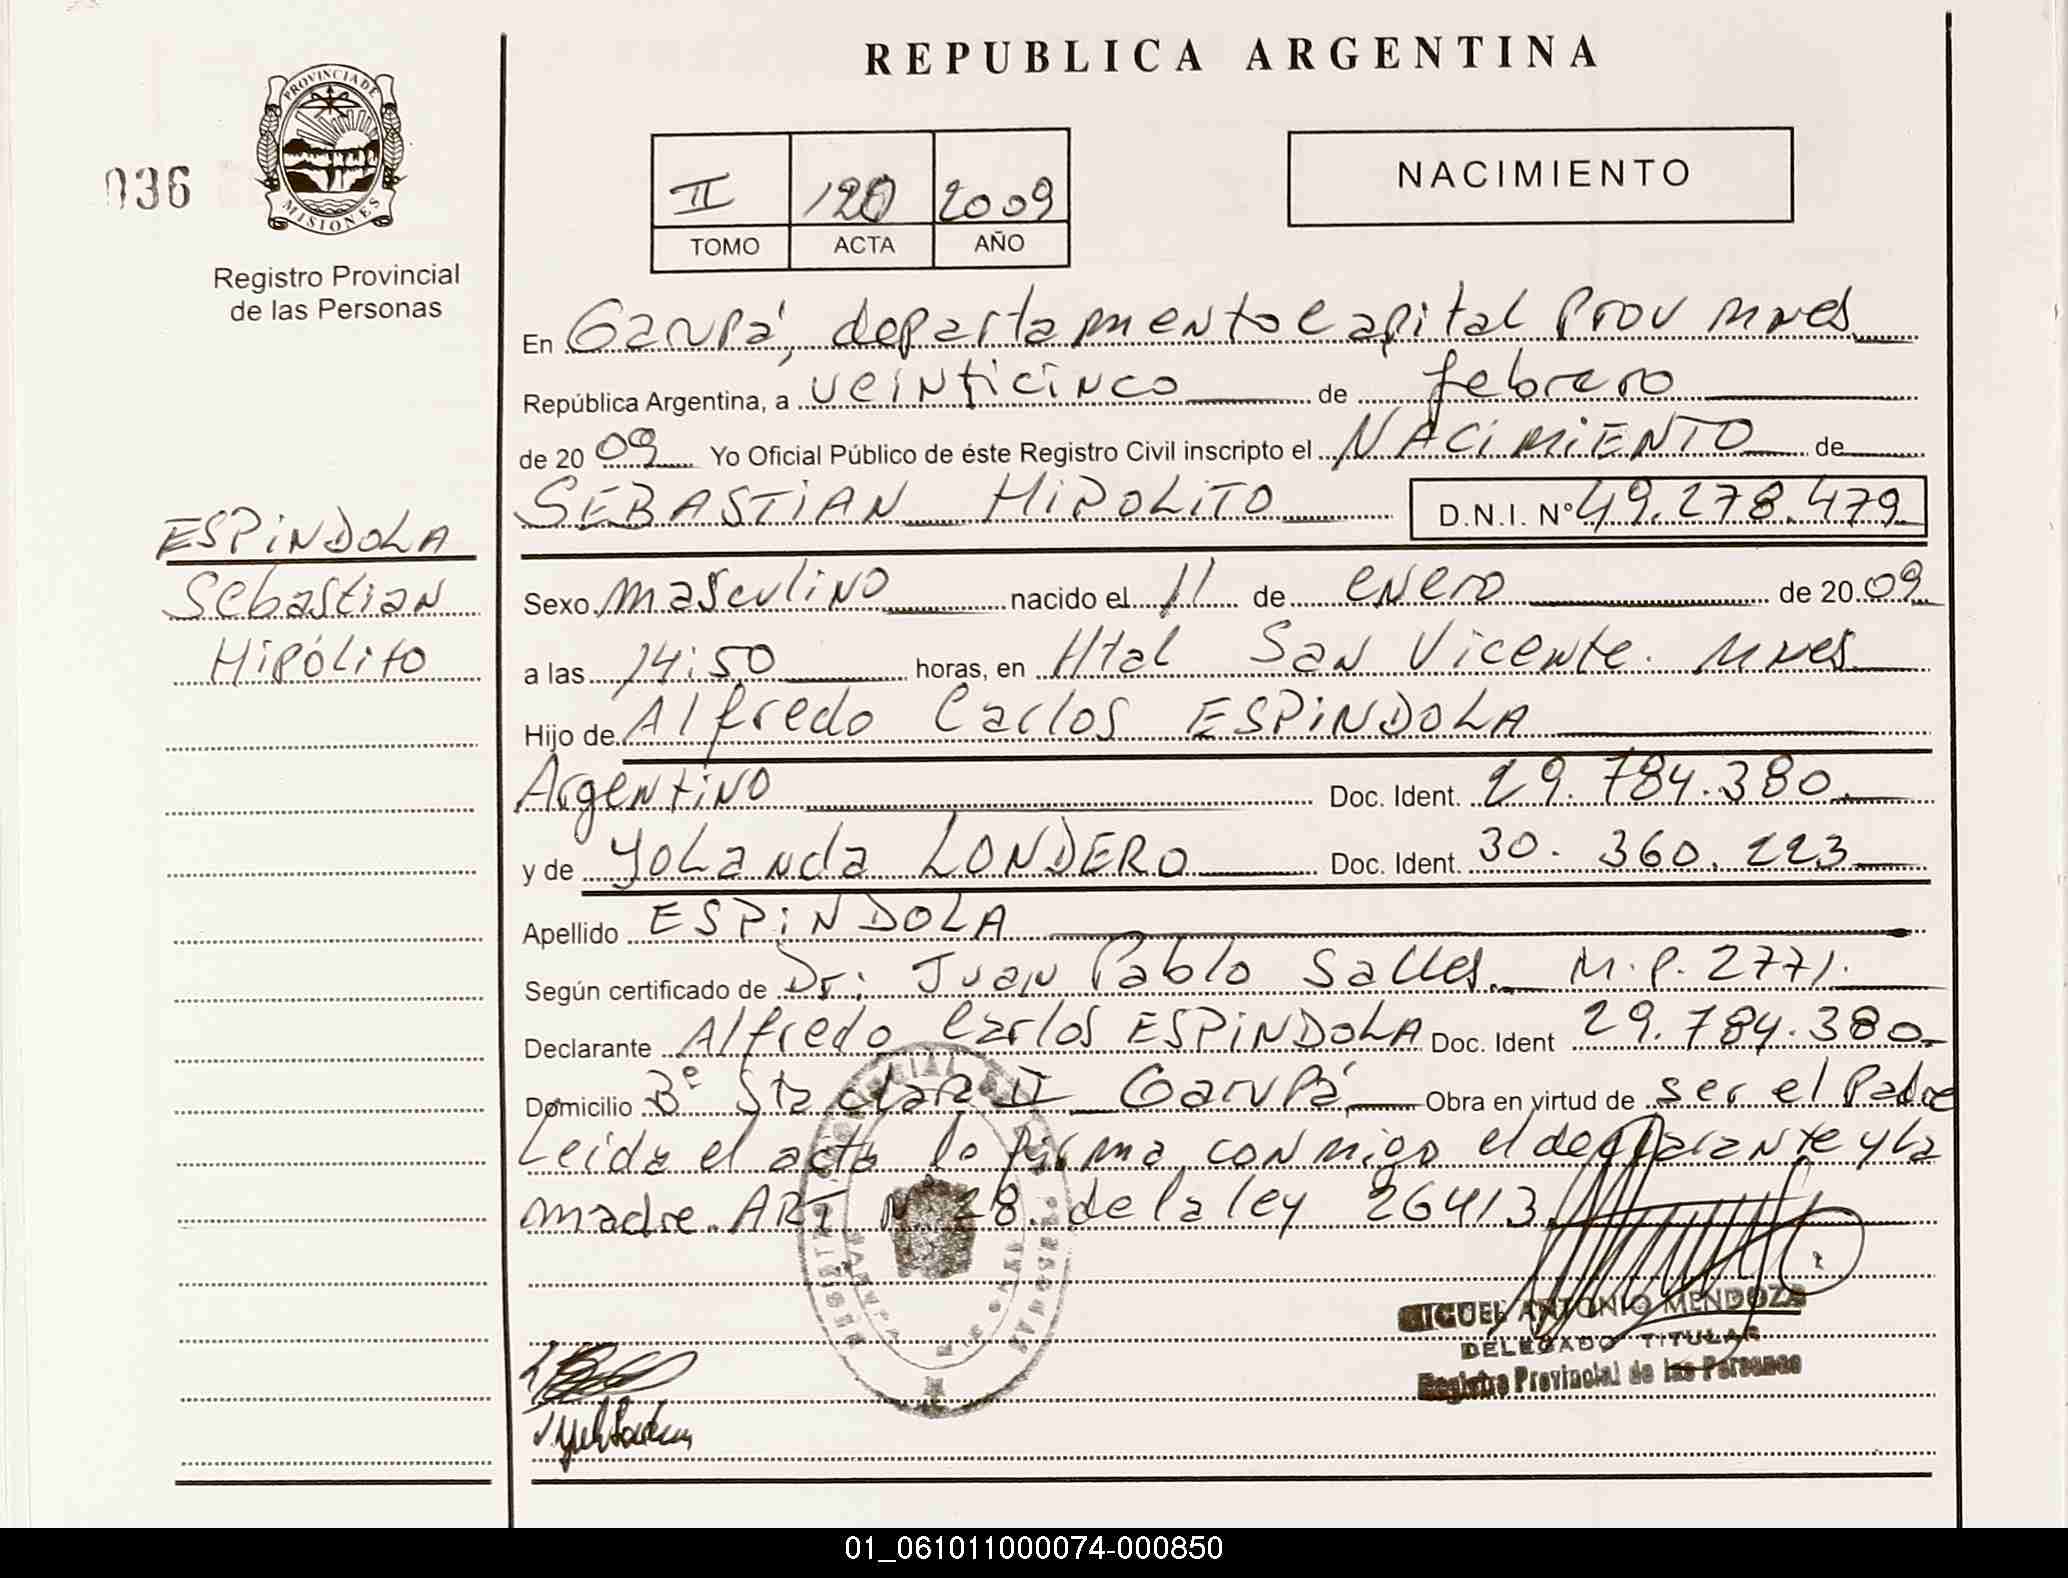 REPUBLICA ARGENTINA
PROVINCIA DE
MISIONES
036
Registro Provincial
de las Personas
II 120 2009
TOMO ACTA AÑO
NACIMIENTO
En Garupá, departamento Capital Prov Mnes
República Argentina, a veinticinco de febrero
de 2009 Yo Oficial Público de éste Registro Civil inscripto el NACIMIENTO de
SEBASTIAN HIPOLITO D.N.I. Nº 49.278.479
ESPINDOLA
Sebastian
Hipólito
Sexo masculino nacido el 11 de enero de 2009
a las 14:50 horas, en Htal San Vicente. Mnes
Hijo de Alfredo Carlos ESPINDOLA
Argentino Doc. Ident. 29.784.380.
y de Yolanda LONDERO Doc. Ident. 30.360.223
Apellido ESPINDOLA
Según certificado de Dr: Juan Pablo Salles. M.P. 2771.
Declarante Alfredo Carlos ESPINDOLA Doc. Ident 29.784.380
Domicilio Bº Sta Clara II Garupá, Obra en virtud de ser el Padre
Leida el acta lo firma conmigo el declarante y la
madre. ART Nº 28. de la ley 26413.
MIGUEL ANTONIO MENDOZA
DELEGADO TITULAR
Registro Provincial de las Personas
01_061011000074-000850